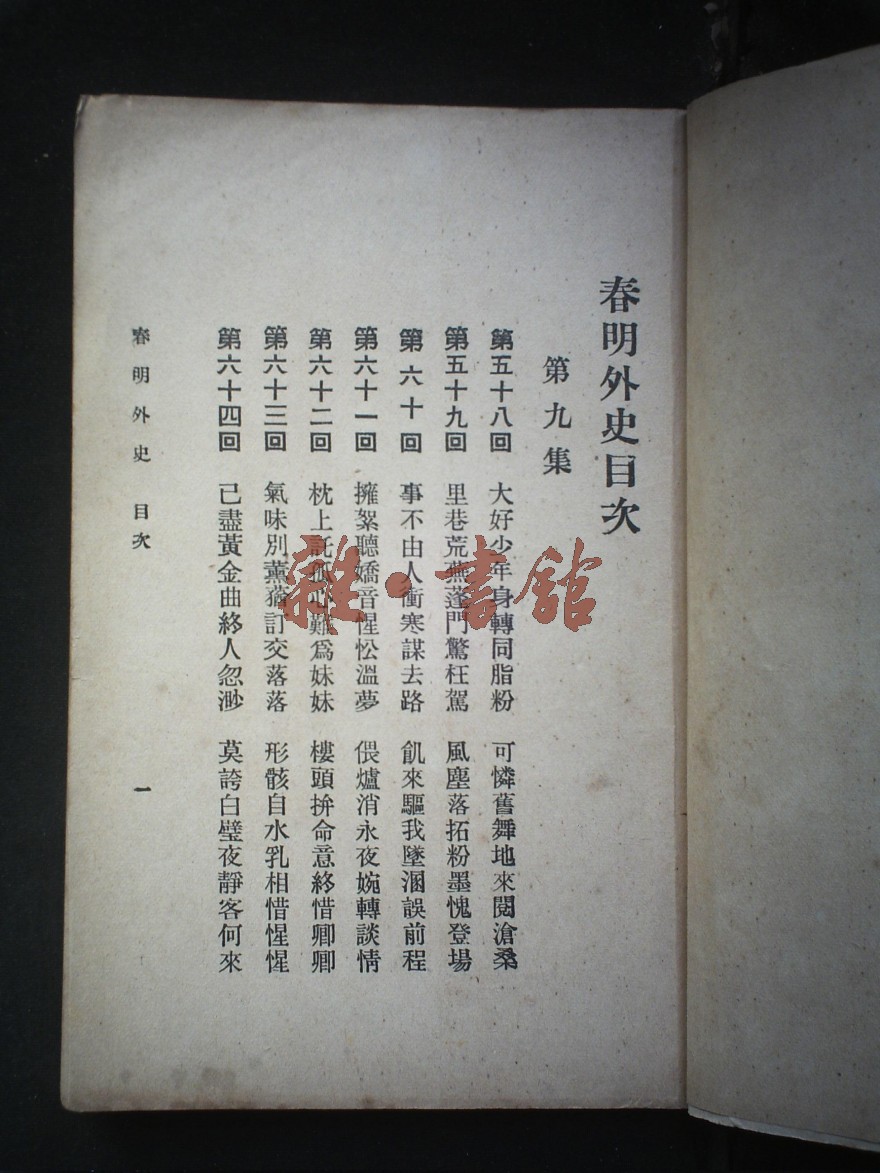 春明外史目次
第九集
第五十八回 大好少年身轉同脂粉 可憐舊舞地來閱滄桑
第五十九回 里巷荒蕪蓬門驚枉駕 風塵落拓粉墨愧登場
第六十回 事不由人衝寒謀去路 飢來驅我墜溷誤前程
第六十一回 擁絮聽嬌音惺忪溫夢 偎爐消永夜婉轉談情
第六十二回 枕上託孤心難爲妹妹 樓頭拚命意終惜卿卿
第六十三回 氣味別薰蕕訂交落落 形骸自水乳相惜惺惺
第六十四回 己盡黃金曲終人忽渺 莫誇白璧夜靜客何來
春明外史 目次 一
雜·書館